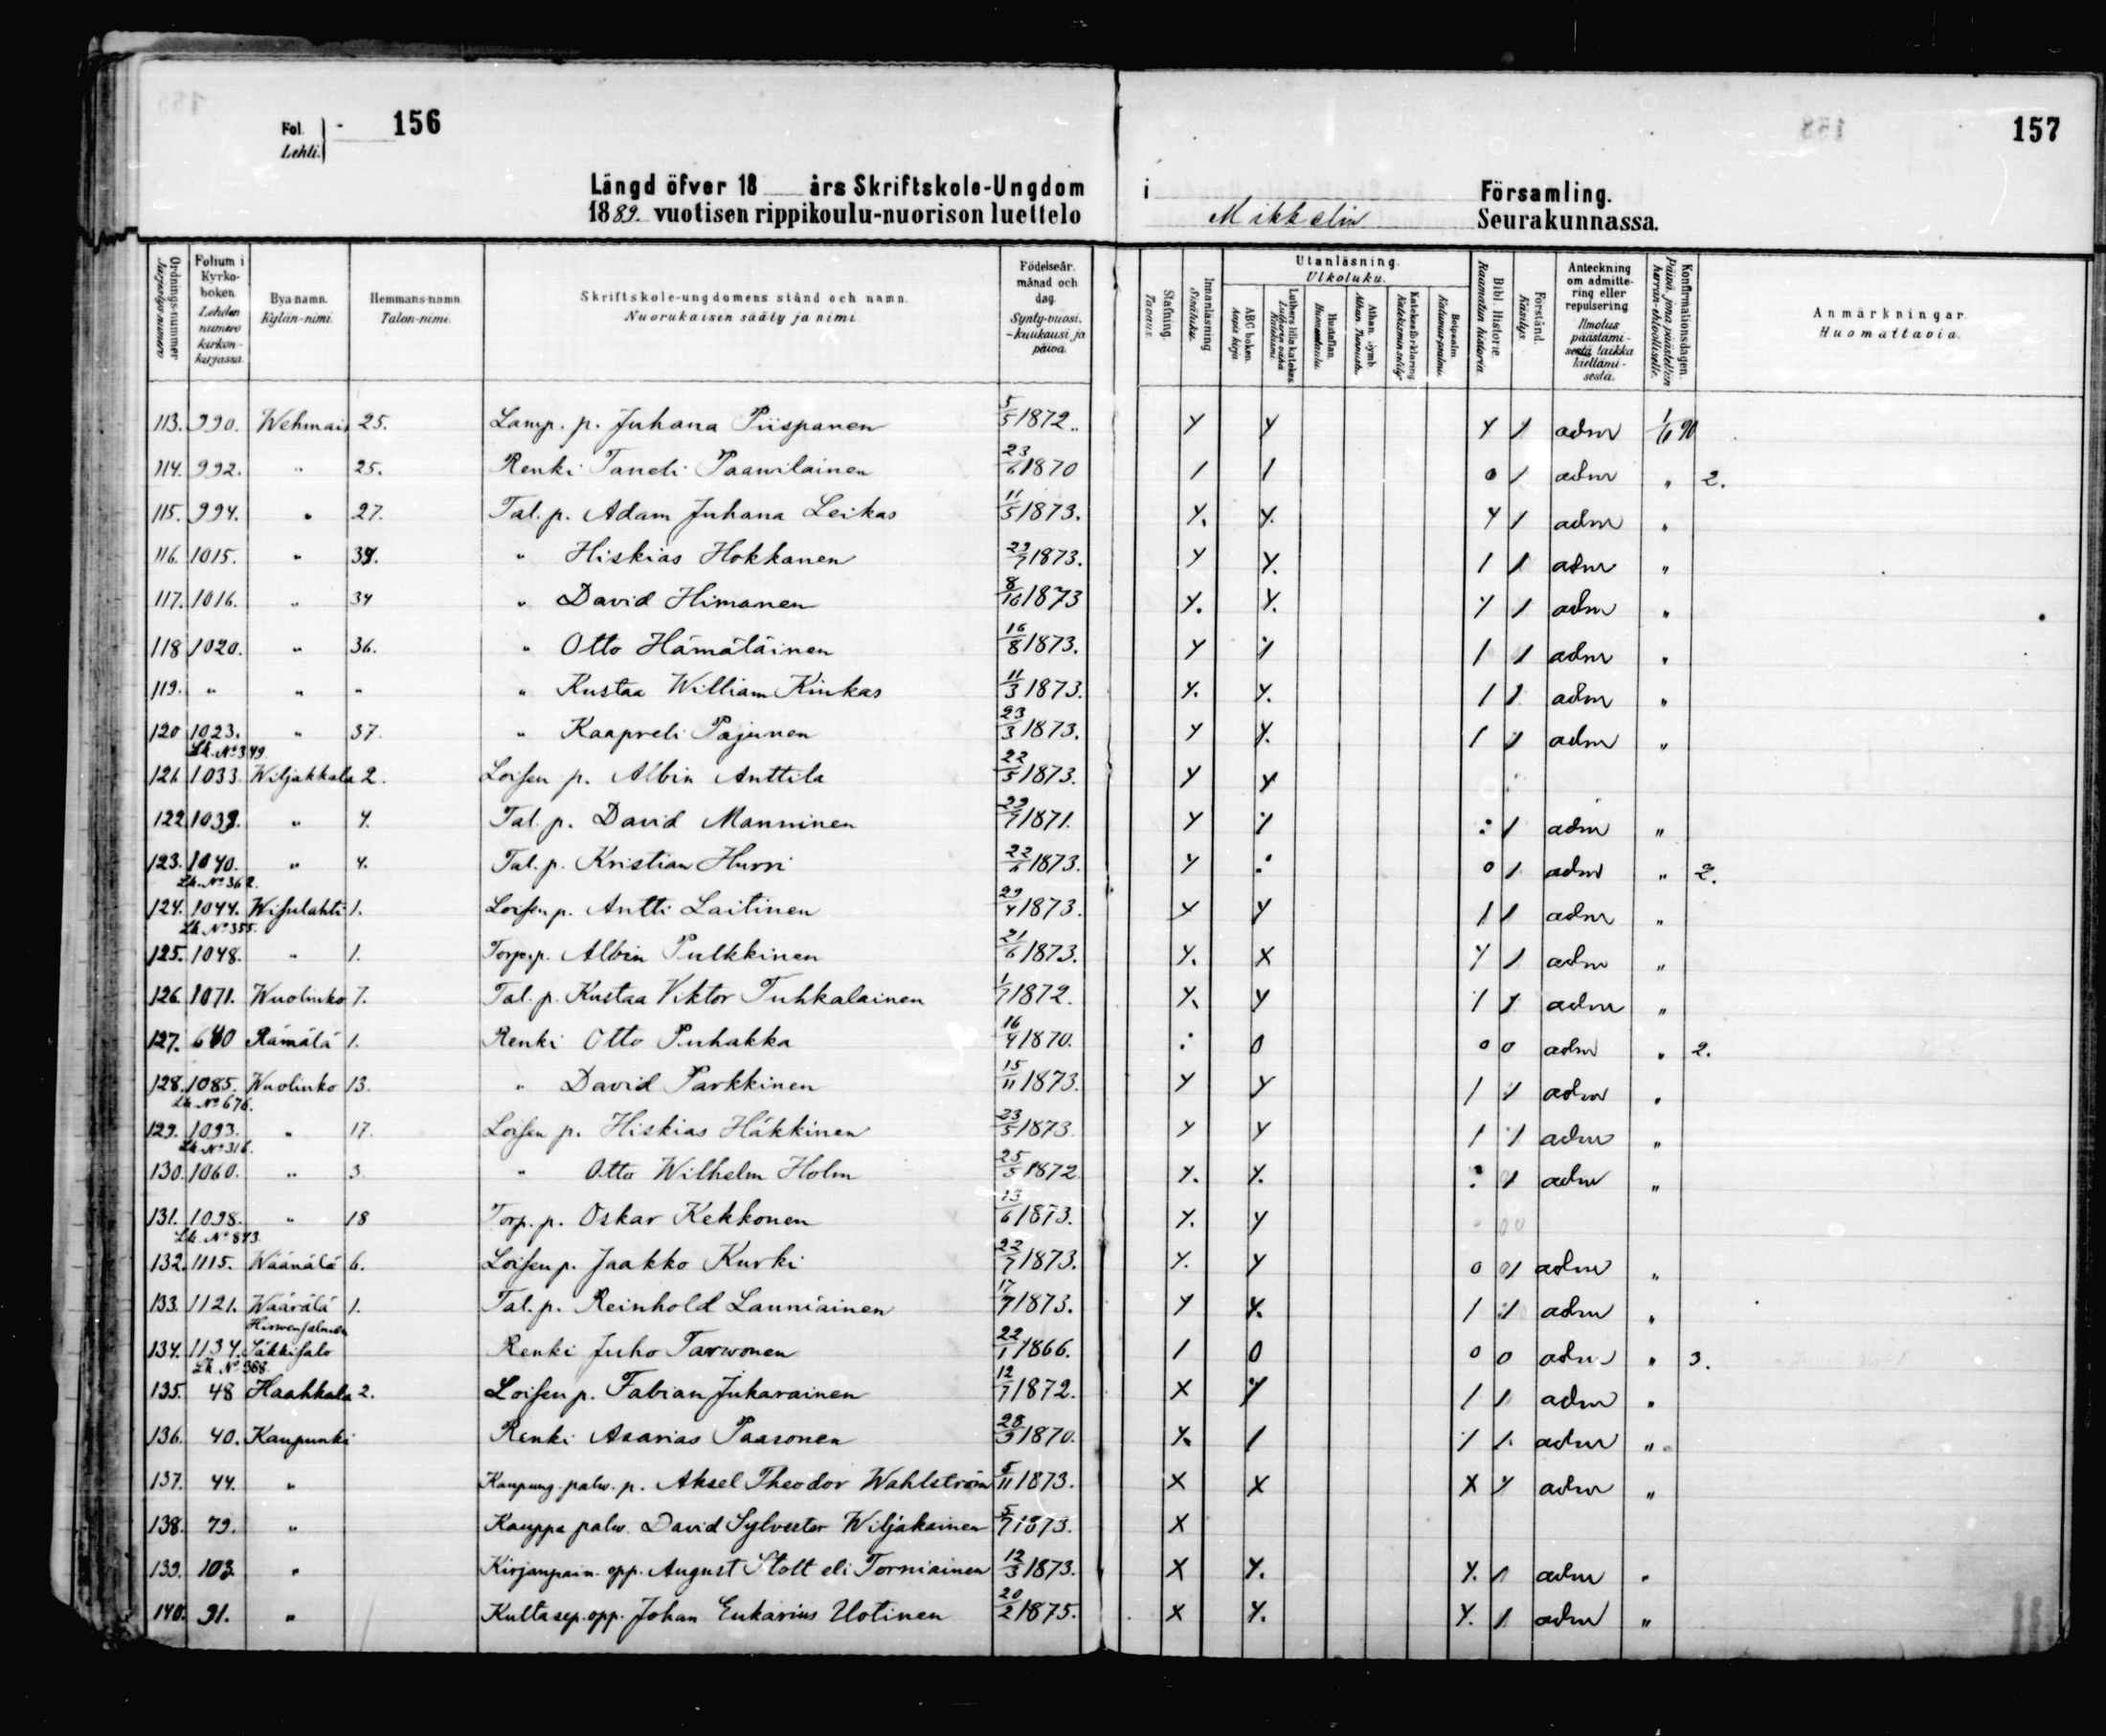 Fol. Lehti. 156
157
Längd öfver 18 års Skriftskole-Ungdom i Församling.
1889. vuotisen rippikoulu-nuorison luettelo Mikkelin Seurakunnassa.
Ordnings-nummer Järjestys-numero
Folium i Kyrko-boken. Lehden numero kirkon-kirjassa.
Bya namn. Kylän-nimi.
Hemmans-namn. Talon-nimi.
Skriftskole-ungdomens stånd och namn. Nuorukaisen sääty ja nimi.
Födelseår. månad och dag. Synty-vuosi. -kuukausi ja päivä.
Stafning. Tavaus.
Innanläsning Sisäluku.
Utanläsning. Ulkoluku.
ABC boken. Aapis kirja.
Luthers lilla katekes. Lutherin vähä Katekismi.
Hustaflan. Huoneentaulu.
Athan. Symb. Athan. Tunnustus.
Katekesförklaring. Katekismin selitys.
Botpsalm. Katumus-psalmi.
Bibl. Historie. Raamatun historia.
Förstånd. Käsitys.
Anteckning om admitte-ring eller repulsering Ilmotus päästämi-sestä taikka kieltämi-sestä.
Konfirmationsdagen. Päivä, jona päästettiin herran-ehtoolliselle.
Anmärkningar. Huomattavia.
113. 990. Wehmais 25. Lamp. p. Juhana Piispanen 5/5 1872. y y y 1 adm 1/11 90
114. 992. " 25. Renki Taneli Paawilainen 23/6 1870 1 1 0 1 adm " 2.
115. 994. " 27. Tal. p. Adam Juhana Leikas 11/5 1873. y. y. y 1 adm "
116. 1015. " 34. " Hiskias Hokkanen 29/7 1873. y y. 1 1 adm "
117. 1016. " 34 " David Himanen 8/10 1873 y. y. y 1 adm "
118 1020. " 36. " Otto Hämäläinen 16/8 1873. y 1 1 adm "
119. " " " " Kustaa William Kinkas 11/3 1873. y. y. 1 1 adm "
120 1023. " 37. " Kaapreli Pajunen 23/3 1873. y y. 1 1 adm "
Lk. No 349.
121. 1033. Wiljakkala 2. Loisen p. Albin Anttila 22/5 1873. y y
122. 1039. " 4. Tal. p. David Manninen 29/7 1871. y : 1 adm "
123. 1040. " 4. Tal. p. Kristian Hurri 22/6 1873. y : 0 1 adm " 2.
Lk. No 362.
124. 1044. Wisulahti 1. Loisen p. Antti Laitinen 29/4 1873. y y 1 1 adm "
Lk. No 355.
125. 1048. " 1. Torp. p. Albin Pulkkinen 21/6 1873. y. x y 1 adm "
126. 1071. Wuolinko 7. Tal. p. Kustaa Viktor Tuhkalainen 1/7 1872. y. y 1 1 adm "
127. 640 Rämälä 1. Renki Otto Puhakka 16/4 1870. : 0 0 0 adm " 2.
128. 1085. Wuolinko 13. " David Parkkinen 15/11 1873. y y 1 1 adm "
Lk. No 676.
129. 1093. " 17. Loisen p. Hiskias Häkkinen 23/5 1873 y y 1 1 adm "
Lk. No 316.
130. 1060. " 3. " Otto Wilhelm Holm 25/5 1872 y. y. : 1 adm "
131. 1098. " 18 Torp. p. Oskar Kekkonen 13/6 1873. y. y
Lk. No 873.
132. 1115. Wäänälä 6. Loisen p. Jaakko Kurki 22/7 1873. y. y 0 1 adm "
133. 1121. Wäärälä 1. Tal. p. Reinhold Launiainen 17/7 1873. y y. 1 1 adm "
Hirwensalmen
134. 1134. Säkkisalo Renki Juho Tarwonen 22/1 1866. 1 0 0 0 adm " 3.
Lk. No 388.
135. 48 Haahkala 2. Loisen p. Fabian Jukarainen 12/7 1872. x 1 1 adm "
136. 40. Kaupunki Renki Asarias Paasonen 28/9 1870. y. 1 1 1. adm "
137. 44. " Kaupung. palw. p. Aksel Theodor Wahlström 5/11 1873. x x x y adm "
138. 79. " Kauppa palw. David Sylvester Wiljakainen 5/7 1873. x
139. 103. " Kirjanpain. opp. August Stolt eli Torniainen 12/3 1873. x y. y. 1 adm "
140. 91. " Kultasep. opp. Johan Eukarius Uotinen 20/2 1875. x y. y. 1 adm "